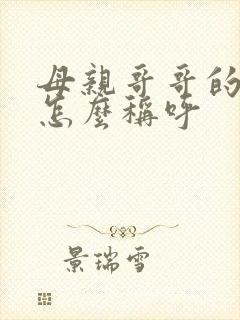 母親哥哥的
怎麼稱呼
景瑞雪